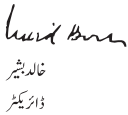 خالد بشیر
ڈائریکٹر